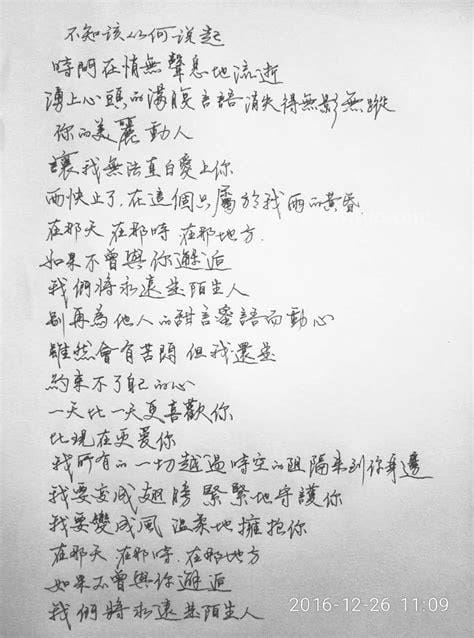 不知該从何说起
時間在悄無聲息地流逝
湧上心頭的滿腹言語消失得無影無蹤
你的美麗動人
讓我無法直白愛上你
雨快止了.在這個只屬於我倆的黃昏
在那天 在那時 在那地方.
如果不曾與你邂逅
我們將永遠是陌生人
別再為他人的甜言蜜語而動心
雖然會有苦悶 但我還是
約束不了自己的心
一天比一天更喜歡你
比現在更爱你
我所有的一切越過時空的阻隔來到你身邊
我要变成翅膀 緊緊地守護你
我要變成風 温柔地擁抱你
在那天 在那時. 在那地方
如果不曾與你邂逅
我們將永遠是陌生人
2016-12-26 11:09